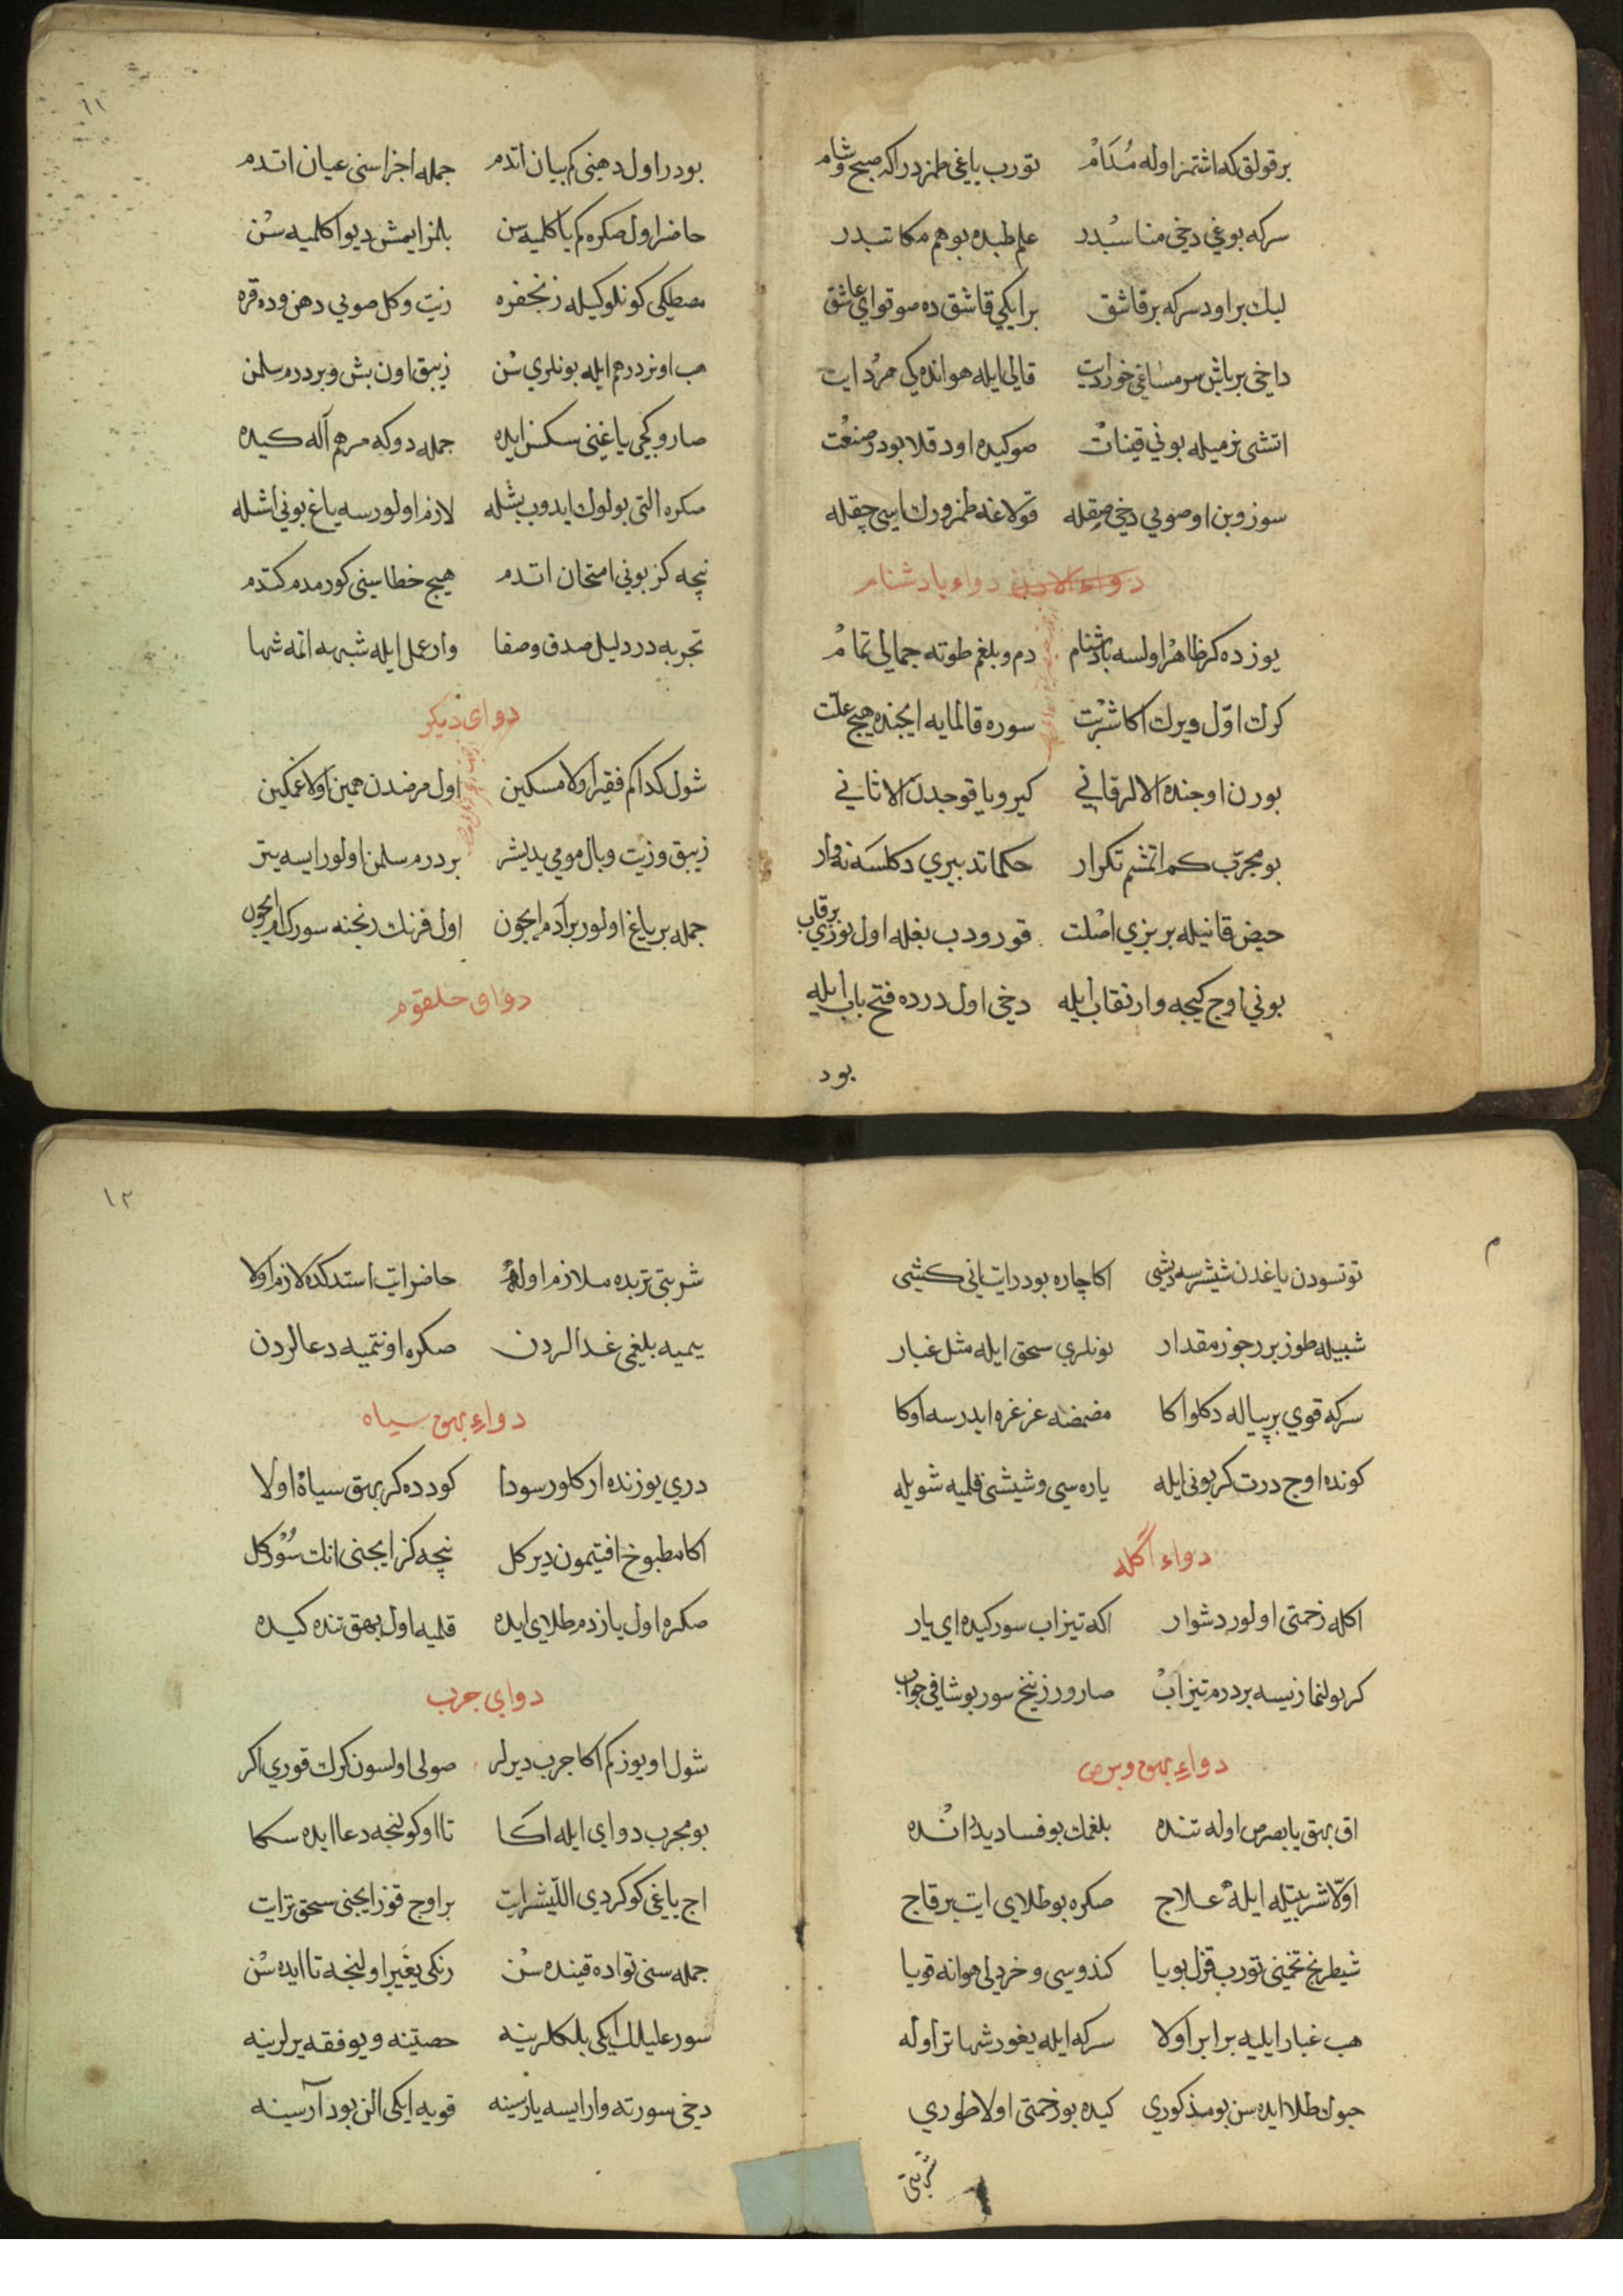 بر قولق كه اشتمز اوله مُدَامْ توْرب ياغى طمزدر اكه صبح و شام
سركه بوغى دخى مناسبْدر علم طبده بو هم مكاتبدر
ليك براود سركه بر قاشق بر ايكى قاشق ده صو قو اى عاشق
داخى بر باش سرمساغى خورد ايت قالى ايله هوانده كى مرد ايت
اتشى نرميله بونى قينات صو كيده اود قلا بودر صنعت
سوز وبن اوصويى دخى صقله قولاغه طمزورك ايسى چقله
دواء الاذن دواء بادشنام
يوزده كر ظاهر اولسه بادشنام دم و بلغم طوته جمالى تمام
كرك اوّل ويرك اكا شربت سوره قالمايه ايچنده هيچ علّت
بورن اوجنده الالر قانى كيرو يا قوجدن الا ثانى
بو مجرّب كم اتمشم تكرار حكما تدبيرى دكلسه نه وار
حيض قانيله بر بزى اصْلت قورودب بغله اول يوزى بر قاب
بونى اوج كيجه وار نقاب ايله دخى اول درده فتح باب ايله
بود
١١
بودر اول دهنى كم بيان اتدم جمله اجزاسنى عيان اتدم
حاضر اول صكره كم ياكلميه سن بلمز ايمش ديو اكلميه سن
مصطكى كونلوكيله زنجفره زيت و كل صويى دهن ورده قره
هب اونر درهم ايله بونلرى سن زيبق اون بش و بر درم سلمن
صاروكچى ياغينى سكسن ايده جمله دوكه مرهم آله كيده
صكره التى بولوك ايدوب بشله لازم اولورسه ياغ بونى اشله
نيچه كز بونى امتحان اتدم هيچ خطاسينى كورمدم كتدم
تجربه در دليل صدق و صفا وار عمل ايله شبهه اتمه شها
دواى ديكر
شول كدا كم فقير اولا مسكين اول مرضدن همين اولا غمكين
زيبق و زيت و بال مومى يديشر بر درم سلمن اولور ايسه يتر
جمله بر ياغ اولور بر آدم ايچون اول فرنك رنجنه سورك ام ايچون
دواى حلقوم
م
توتسودن ياغدن ششرسه ديشى اكا چاره بودر ايت انى كشى
شبيله طوز برر جوز مقدار بونلرى سحق ايله مثل غبار
سركه قوى بر پياله دكلو اكا مضمضه غرغره ايدرسه اوكا
كونده اوج درت كر بونى ايله ياره سى و شيشى قلميه شويله
دواء اكله
اكله زحمتى اولور دشوار اكه تيزاب سور كيده اى يار
كر بولنماز ايسه بر درم تيزابْ صارو زرنيخ سور بو شافى جواب
دواءِ بهق و برص
اق بهق يا برص اوله تنده بلغمك بو فساديدر انْده
اوّلا شربتيله ايله علاج صكره بو طلايى ايت بر قاج
شيطرج تخمنى تورب قزل بويا كندوسى و خردلى هوانه قويا
هب غبار ايليه برابر اولا سركه ايله يغور شها تر اوله
چون طلا ايده سن بو مذكورى كيده بو زحمتى اولا طورى
شربتى
١٢
شربتى تربده ملازم اوله حاضر ايت استدكده لازم اولا
يميه بلغمى غدالردن صكره اونتميه دعالردن
دواءِ بهق سياه
درى يوزنده ار كلور سودا كودده كر بهق سياه اولا
اكا مطبوخ افتيمون دير كل نيچه كز ايچنى انك سور كل
صكره اول يازدم طلايى ايده قلميه اول بهق تنده كيده
دواى جرب
شول اويوز كم اكا جرب ديرلر صولى اولسون كرك قورى اكر
بو مجرب دوايى ايله اكا تا اوكولنجه دعا ايده سكا
اج ياغى كوكردى اللّيشر ايت بر اوج قوز ايچنى سحق تر ايت
جمله سنى تواده قينده سن رنكى يغيّر اولنجه تا ايده سن
سور عليلك ايكى بلكلرينه حصتينه و يوفقه يرلرينه
دخى سورته وار ايسه يارسينه قويه ايكى الن بود آرسينه